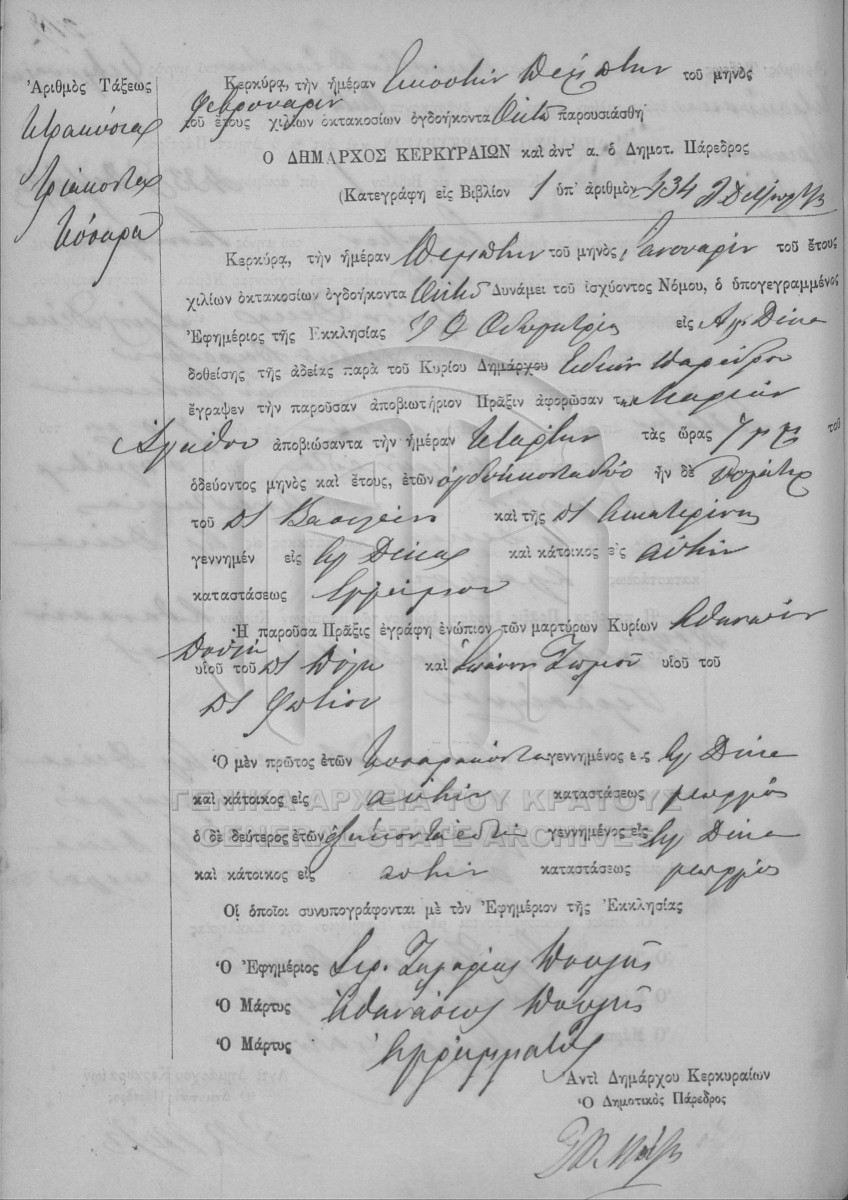 Ἀριθμὸς Τάξεως
Τετρακόσια
τριάκοντα
τέσσαρα
Κερκύρα, τὴν ἡμέραν Εἰκοστὴν Πέμπτην τοῦ μηνὸς
Φεβρουαρίου
τοῦ ἔτους χιλίων ὀκτακοσίων ὀγδοήκοντα Ὀκτὼ παρουσιάσθη
Ο ΔΗΜΑΡΧΟΣ ΚΕΡΚΥΡΑΙΩΝ καὶ ἀντ' α. ὁ Δημοτ. Πάρεδρος
(Κατεγράφη εἰς Βιβλίον 1 ὑπ' ἀριθμὸν 434
Κερκύρα, τὴν ἡμέραν Πέμπτην τοῦ μηνὸς Ἰανουαρίου τοῦ ἔτους
χιλίων ὀκτακοσίων ὀγδοήκοντα Ὀκτὼ Δυνάμει τοῦ ἰσχύοντος Νόμου, ὁ ὑπογεγραμμένος
Ἐφημέριος τῆς Ἐκκλησίας Υ Θ Οδηγητρία εἰς Αγ Δέκα
δοθείσης τῆς ἀδείας παρὰ τοῦ Κυρίου Δημάρχου Εἰδικοῦ Παρέδρου
ἔγραψεν τὴν παροῦσαν ἀποβιωτήριον Πρᾶξιν ἀφορῶσαν τὴν Μαρίαν
Αγαθου ἀποβιώσαντα τὴν ἡμέραν Τετάρτην τὰς ὥρας 7 μμ τοῦ
ὁδεύοντος μηνὸς καὶ ἔτους, ἐτῶν ὀγδοήκοντα δύο ἦν δὲ θυγάτηρ
τοῦ Βασιλείου καὶ τῆς Αικατερίνης
γεννημέν εἰς Αγ Δέκα καὶ κάτοικος εἰς αὐτὴν
καταστάσεως
Ἡ παροῦσα Πρᾶξις ἐγράφη ἐνώπιον τῶν μαρτύρων Κυρίων Αθανασίου
υἱοῦ τοῦ καὶ Ἰωάννου υἱοῦ τοῦ
Φωτίου
Ὁ μὲν πρῶτος ἐτῶν τεσσαράκοντα γεννημένος εἰς Αγ Δέκα
καὶ κάτοικος εἰς αὐτὴν καταστάσεως γεωργός
ὁ δὲ δεύτερος ἐτῶν γεννημένος εἰς Αγ Δέκα
καὶ κάτοικος εἰς αυτὴν καταστάσεως γεωργός
Οἱ ὁποῖοι συνυπογράφονται μὲ τὸν Ἐφημέριον τῆς Ἐκκλησίας
Ὁ Ἐφημέριος Ιερ. Ζαχαρίας
Ὁ Μάρτυς Αθανάσιος
Ὁ Μάρτυς Αγράμματος
Ἀντὶ Δημάρχου Κερκυραίων
Ὁ Δημοτικὸς Πάρεδρος
ΓΕΝΙΚΑ ΑΡΧΕΙΑ ΤΟΥ ΚΡΑΤΟΥΣ
GENERAL STATE ARCHIVES